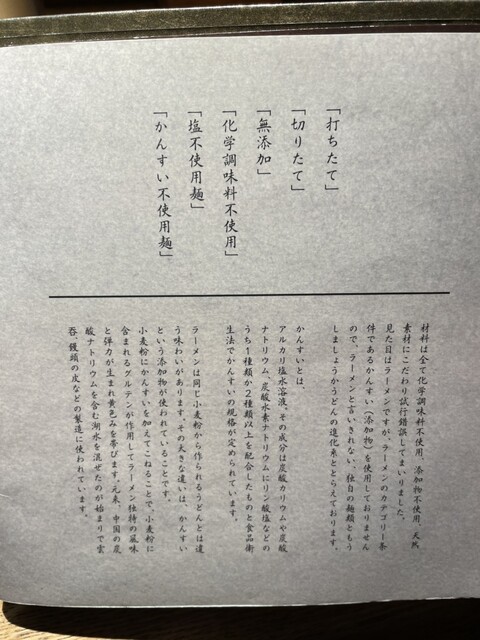 「打ちたて」
「切りたて」
「無添加」
「化学調味料不使用」
「塩不使用麺」
「かんすい不使用麺」
材料は全て化学調味料不使用、添加物不使用、天然
素材にこだわり試行錯誤してまいりました。
見た目はラーメンですが、ラーメンのカテゴリー条
件であるかんすい（添加物）を使用しておりません
ので、ラーメンと言いきれない、独自の麺類ともう
しましょうかうどんの進化系ととらえております。
かんすいとは、
アルカリ塩水溶液。その成分は炭酸カリウムや炭酸
ナトリウム、炭酸水素ナトリウムにリン酸塩などの
うち１種類か２種類以上を配合したものと食品衛
生法でかんすいの規格が定められています。
ラーメンは同じ小麦粉から作られるうどんとは違
う味わいがあります。その大きな違いは、かんすい
という添加物が使われていることです。
小麦粉にかんすいを加えてこねることで、小麦粉に
含まれるグルテンが作用してラーメン独特の風味
と弾力が生まれ黄色みを帯びます。元来、中国の炭
酸ナトリウムを含む湖水を混ぜたのが始まりで雲
呑、饅頭の皮などの製造に使われています。